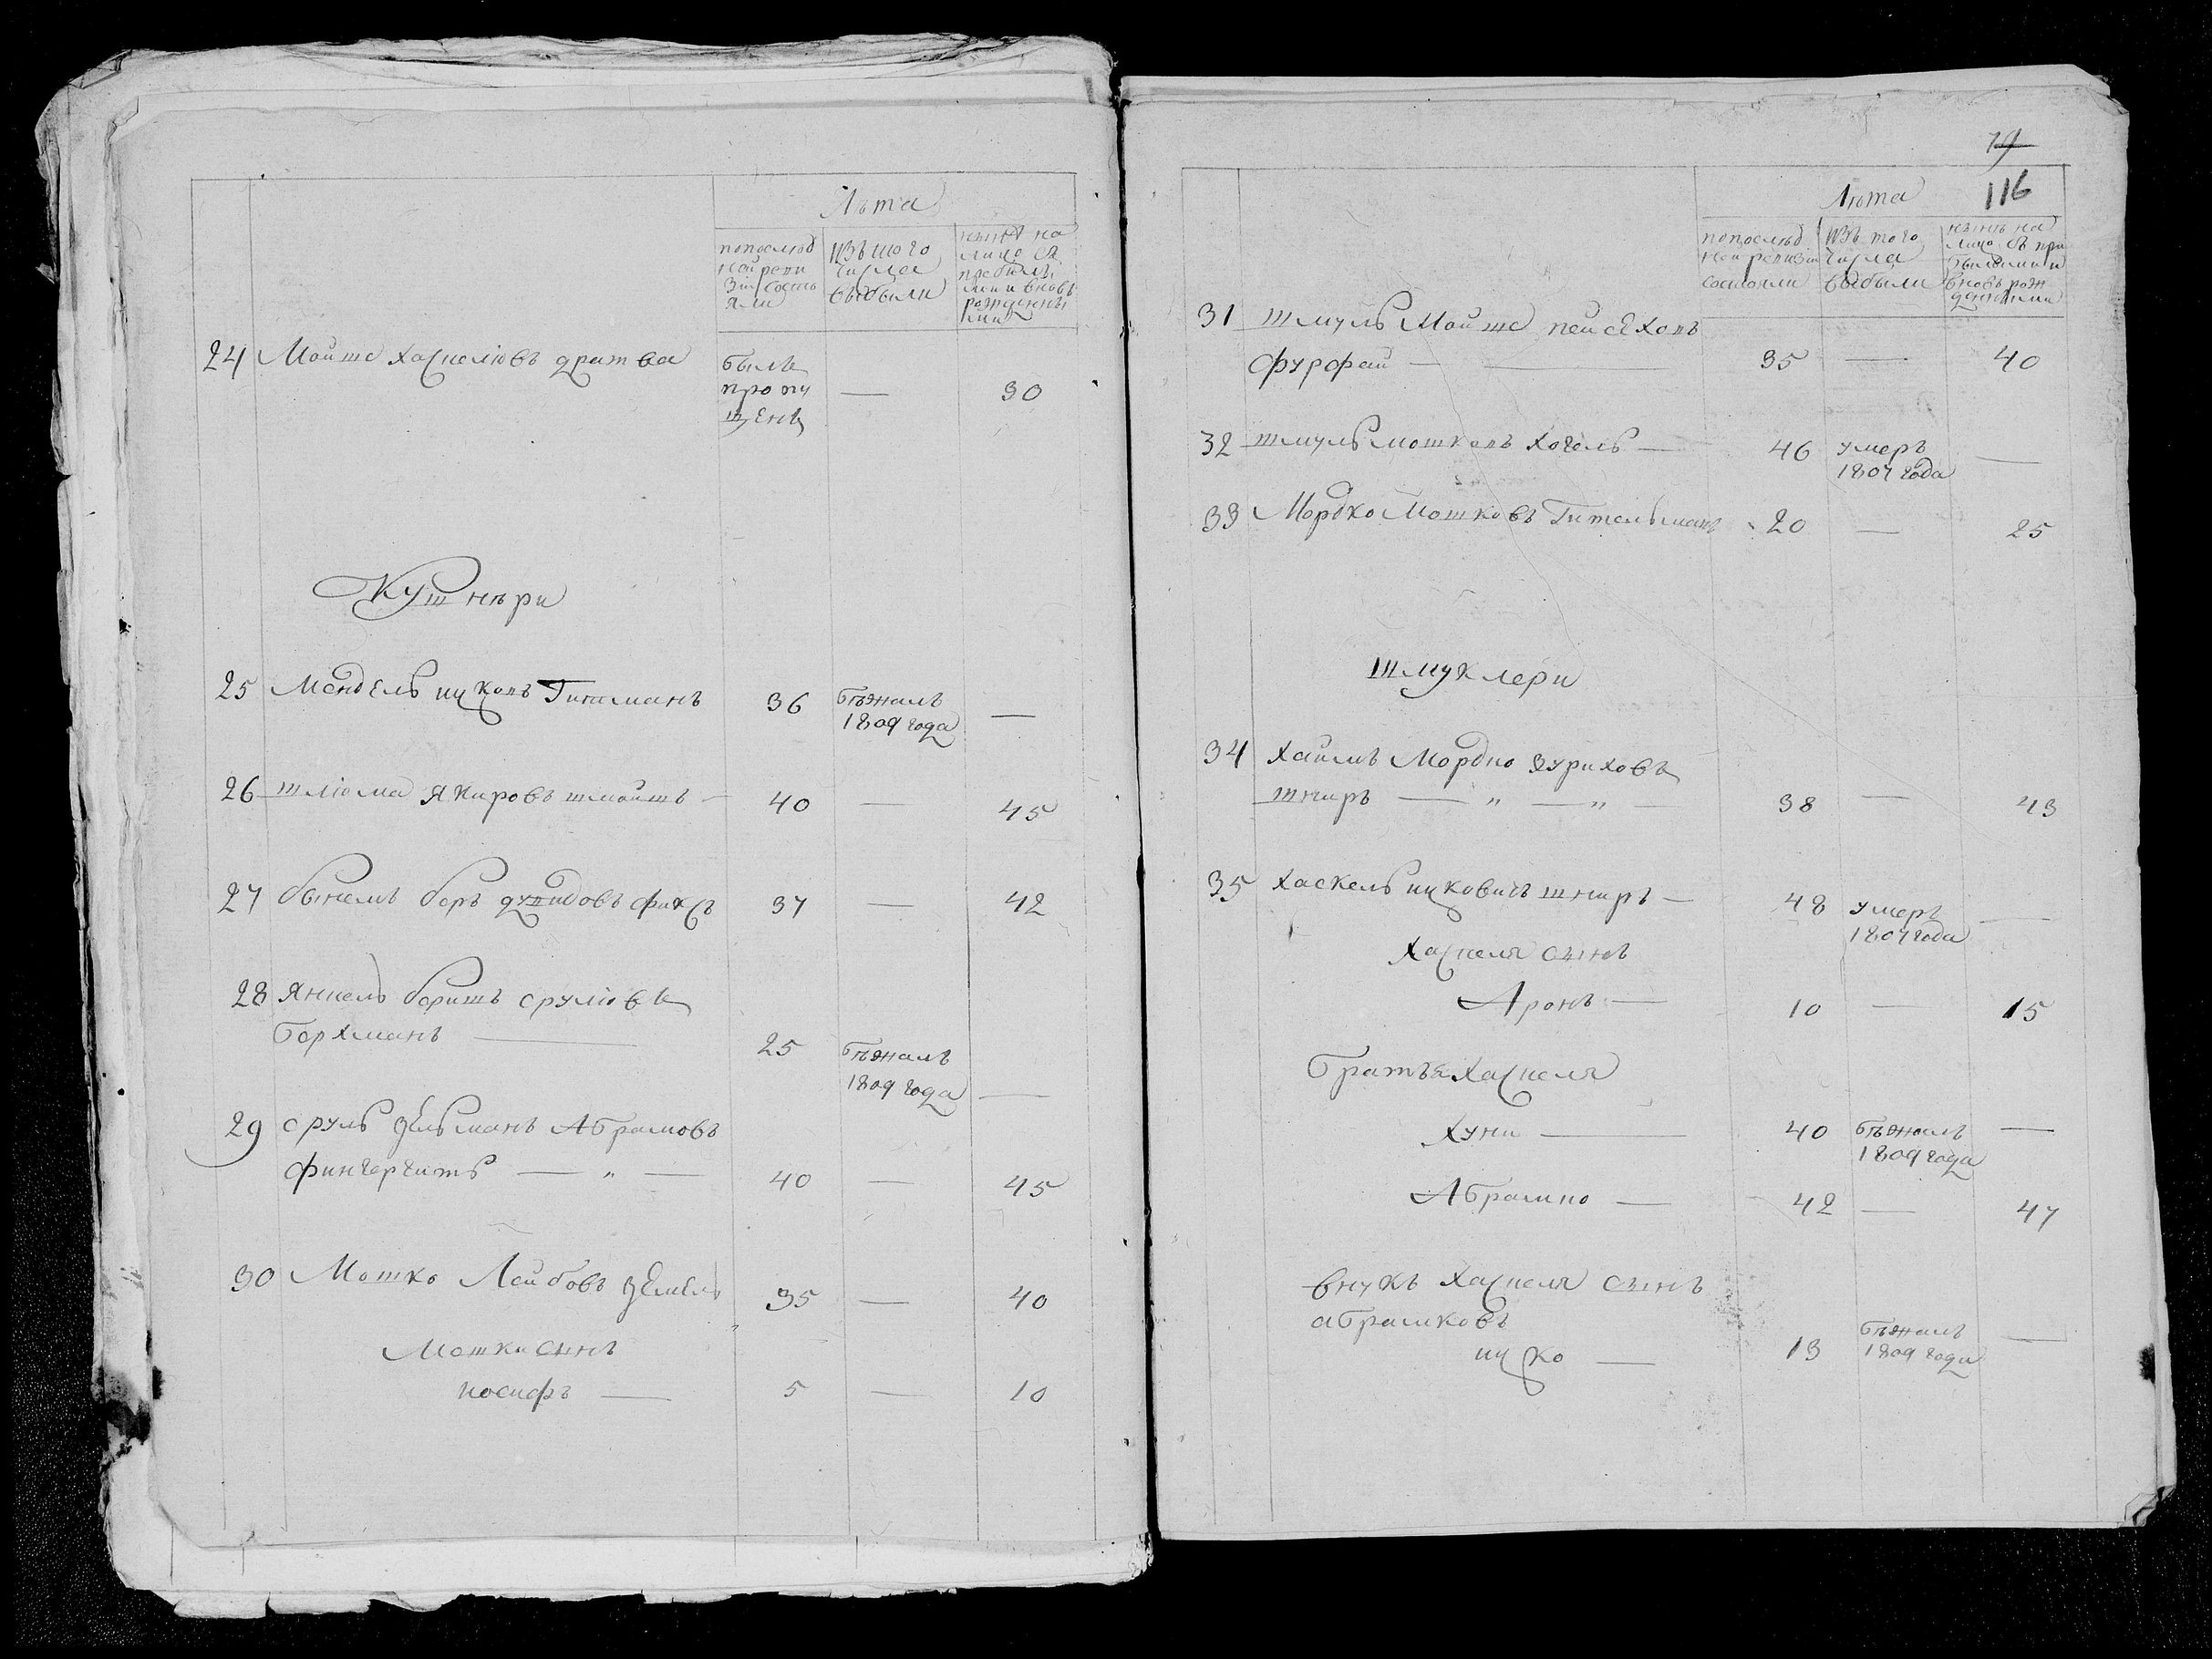 Лѣта
попослѣд
ней реви
зіи состо
яли
изъ того
числа
выбыли
нынѣ на
лицо съ
прибылы
ми и вновь
рожденны
ми
24 Мойше Хаскелювъ дратва
былъ
пропу
щенъ — 30
Кушнѣри
25 Мендель ицковъ Гитманъ 36 бѣжалъ —
1809 года
26 шлюма Якировъ шмойшъ — 40 — 45
27 бынемъ беръ дувидовъ фиксъ 37 — 42
28 Янкель беришъ срулювъ
Берхманъ — 25 бѣжалъ
1809 года —
29 сруль зельманъ Абрамовъ
фингергитъ — „ — 40 — 45
30 Мошко Лейбовъ земель 35 — 40
Мошки сынъ
иосифъ — 5 — 10
79
116
Лѣта
попослѣд
ней ревизіи
состояли
изъ того
числа
выбыли
нынѣ на
лицо съ при
былыми и
вновь рож
денными
31 шмуль Мойше пейсеховъ
фурфей — — 35 — 40
32 шмуль мошковъ Хогель — 46 умеръ —
1807 года
33 Мордко Мошковъ Гительманъ 20 — 25
шмуклери
34 Хаимъ Мордко зуриховъ
шниръ — „ — „ — 38 — 43
35 Хаскель ицковичъ шниръ — 48 умеръ —
1807 года
Хаскеля сынъ
Аронъ — 10 — 15
братья Хаскеля
Хуни — 40 бѣжалъ —
1809 года
Абрамко — 42 — 47
внукъ Хаскеля сынъ
абрамковъ
ицко — 13 бѣжалъ —
1809 года